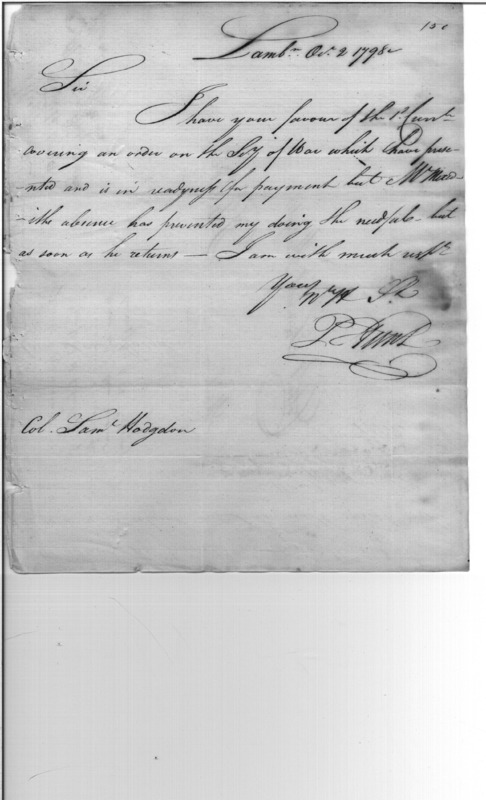 150
Lambn. Oct. 2 1798
Sir
I have your favour of the 1st. Curnt.
covering an order on the Secy of War which I have prese-
nted and is in readyness for payment but Mr. Mered-
-iths absence has prevented my doing the needful but
as soon as he returns — I am with much respt.
Your
P. Hunt
Col. Saml. Hodgdon